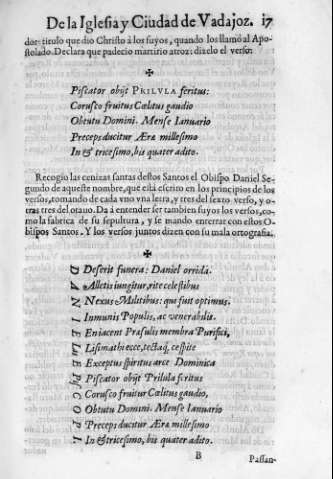 De la Iglesia y Ciudad de Vadajoz. 17
dor: titulo que dio Christo à los suyos, quando los llamó al Apo-
stolado. Declara que padecio martirio atroz: dizelo el verso:
✠
Piscator obijt PRILVLA feritus:
Corusco fruitus Cœlitus gaudio
Obtutu Domini. Mense Ianuario
Preceps ducitur Æra millesimo
In & tricesimo, bis quater adito.
Recogio las cenizas santas destos Santos el Obispo Daniel Se-
gundo de aqueste nombre, que està escrito en los principios de los
versos, tomando de cada vno vna letra, y tres del sexto verso, y o-
tras tres del otauo. Da à entender ser tambien suyos los versos, co-
mo la fabrica de su sepultura, y se mando enterrar con estos O-
bispos Santos. Y los versos juntos dizen con su mala ortografia.
✠
D Deserit funera: Daniel orrida.
A Alletis iungitur, rite celestibus
N Nexus Militibus: que fuit optimus.
I Inmunis Populis, ac venerabilis.
E Eniacent Præsulis membra Purifici,
L Lisimathi ecce, tectaq, cespite
E Exceptus spiritus arce Dominica
Pis Piscator obijt Prilula feritus
C Corusco fruitur Cœlitus gaudio,
O Obtutu Domini. Mense Ianuario
P Preceps ducitur Æra millesimo
I In & tricesimo, bis quater adito.
B Passan-